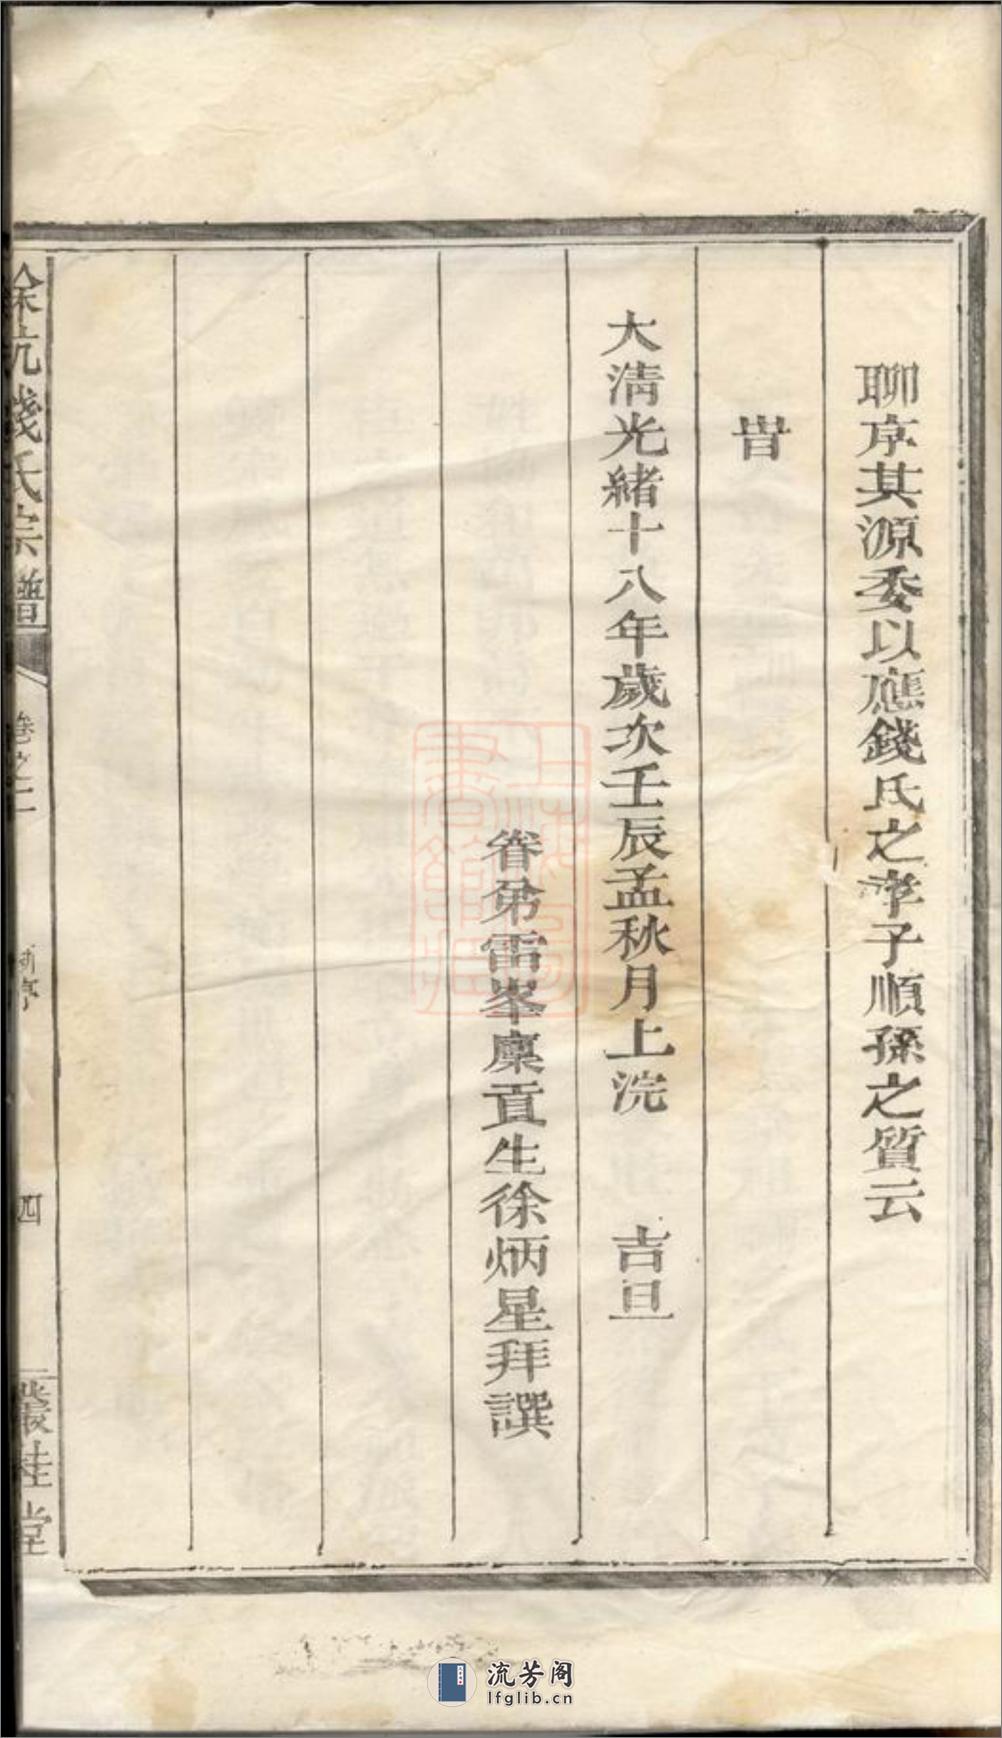 聊序其源委以應錢氏之孝子順孫之質云
旹
大清光緒十八年歲次壬辰孟秋月上浣 吉旦
眷弟雷峯廩貢生徐炳星拜譔
餘杭錢氏宗譜 卷之二 四 叢桂堂
上海圖書館藏
流芳阁
lfglib.cn